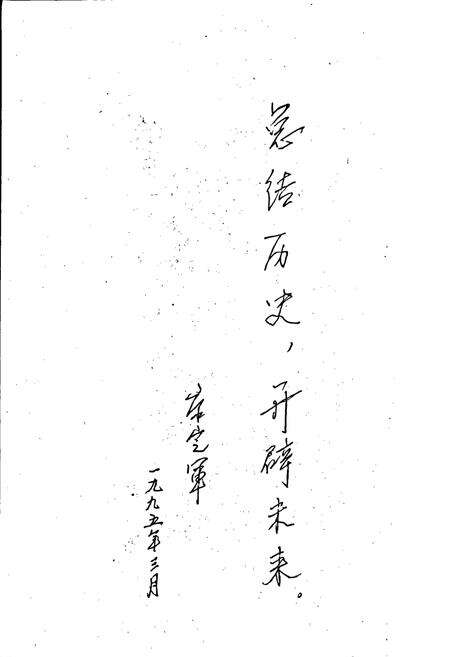 总结历史，开辟未来。
定軍
一九九五年三月